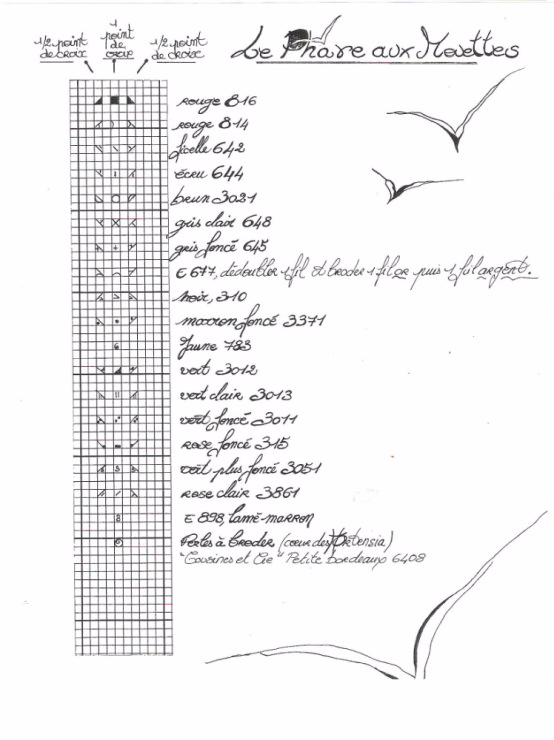 1/2 point de croix
1 point de croix
1/2 point de croix
Le Phare aux Mouettes
rouge 816
rouge 814
ficelle 642
écru 644
brun 3021
gris clair 648
gris foncé 645
E 677, dédoubler 1 fil et broder 1 fil or puis 1 fil argent.
noir, 310
marron foncé 3371
Jaune 783
vert 3012
vert clair 3013
vert foncé 3011
rose foncé 315
vert plus foncé 3051
rose clair 3861
E 898, lamé-marron
Perles à broder (cœur des Hortensia)
"Cousines et Cie" Petite bordeaux 6408